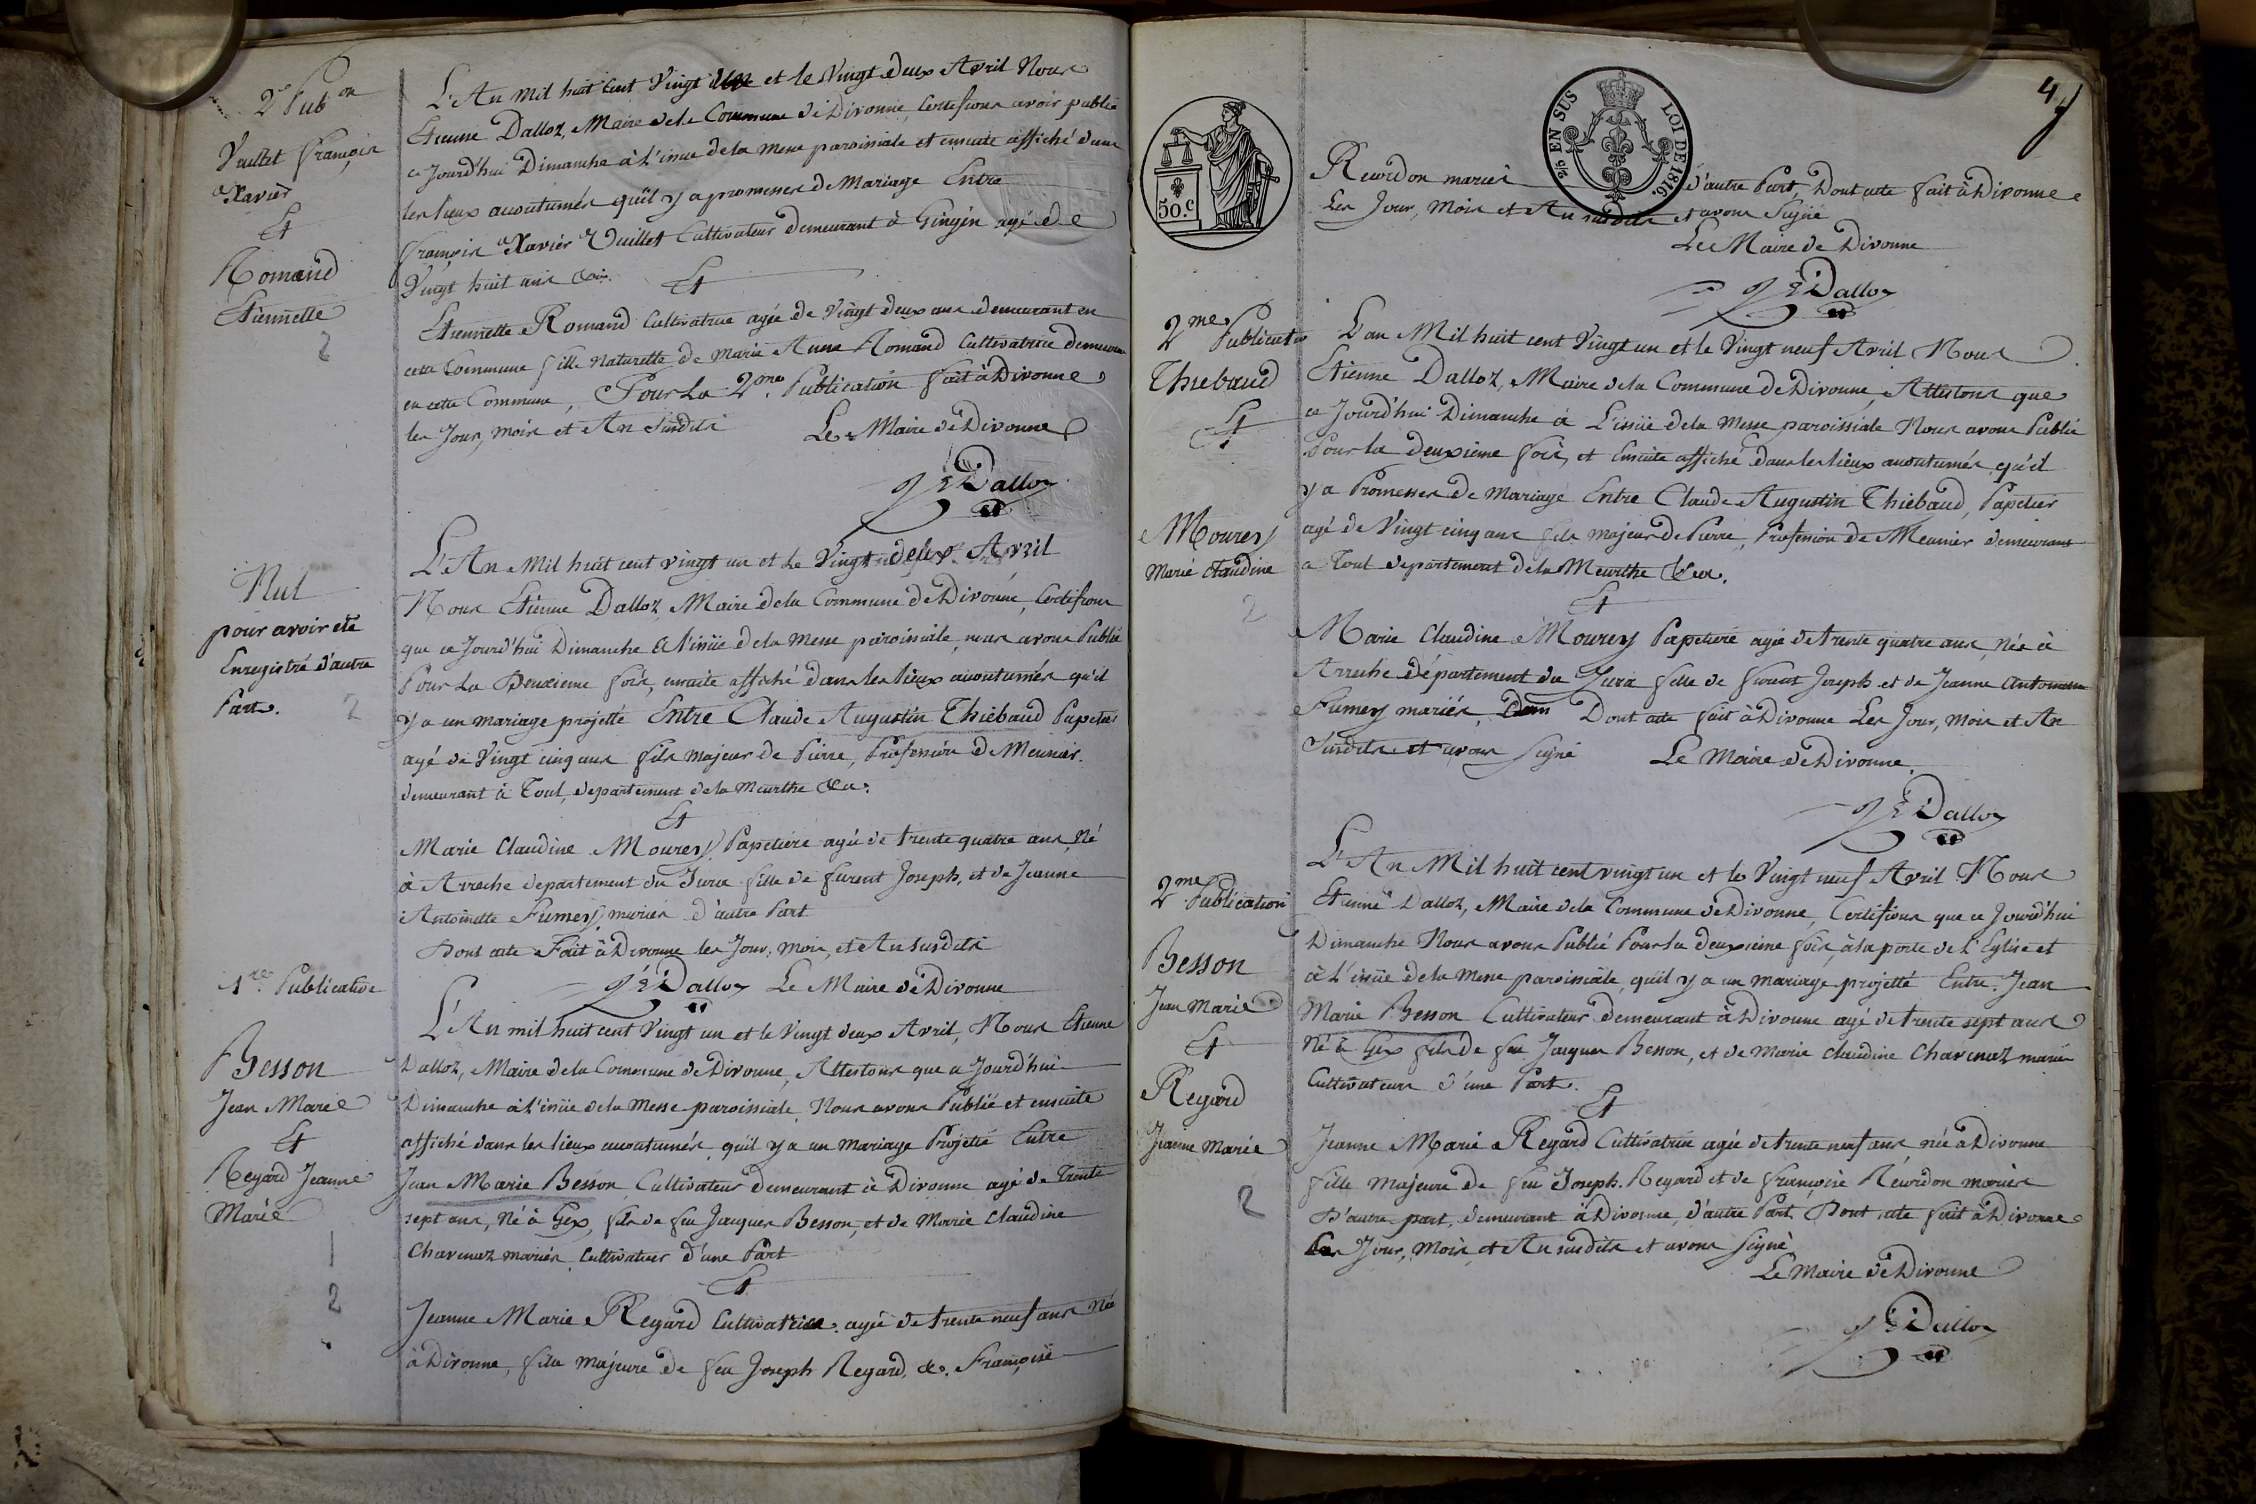 2e Pubon
Vuillet françois
Xavier
Et
Romand
Etiennette
2
L'An mil huit cent Vingt une et le Vingt deux Avril Nous
Etienne Dalloz Maire de la Commune de Divonne, Certifions avoir publié
ce Jourd'hui Dimanche à l'issue de la Messe paroissiale et ensuite affiché dans
les lieux accoutumés qu'il y a promesses de Mariage Entre
françois Xavier Vuillet Cultivateur demeurant à Gingin agé de
Vingt huit ans &a.
Et
Etiennette Romand Cultivatrice agée de Vingt deux ans demeurant en
cette Commune fille naturelle de Marie Anne Romand Cultivatrice demeurant
en cette Commune, Pour La 2me. Publication fait à Divonne
les Jour, mois et An susdits Le Maire de Divonne
Dalloz
Nul
pour avoir été
Enregistré d'autre
Part.
2
L'An Mil huit cent vingt un et le Vingt deux Avril
Nous Etienne Dalloz, Maire de la Commune de Divonne, Certifions
que ce Jourd'hui Dimanche à l'issüe de la Messe paroissiale, nous avons Publié
Pour La Deuxieme fois, ensuite affiché dans les lieux accoutumés qu'il
y a un mariage projetté Entre Claude Augustin Thiebaud Papetier
agé de Vingt cinq ans fils majeur de Pierre, Profession de Meunier.
demeurant à Toul, departement de la Meurthe &a.
Et
Marie Claudine Mourey Papetiere agée de trente quatre ans, Né
à Arreche departement du Jura fille de furent Joseph, et de Jeanne
Antoinette Fumey mariés d'autre Part
Dont acte Fait à Divonne les Jour, mois, et An susdits
Dalloz Le Maire de Divonne
1re. Publication
Besson
Jean Marie
Et
Regard Jeanne
Marie
1
2
L'An mil huit cent Vingt un et le Vingt deux Avril, Nous Etienne
Dalloz, Maire de la Commune de Divonne, Attestons que ce Jourd'hui
Dimanche à l'issüe de la Messe paroissiale, Nous avons Publié et ensuite
affiché dans les lieux accoutumés, qu'il y a un mariage Projetté Entre
Jean Marie Besson Cultivateur demeurant à Divonne agé de Trente
sept ans, Né à Gex, fils de feu Jacques Besson, et de Marie Claudine
Chavenaz mariés, Cultivateur d'une Part
Et
Jeanne Marie Regard Cultivatrice, agée de trente neuf ans Née
à Divonne, fille majeure de feu Joseph Regard, &. Françoise
4
50.c
25 EN SUS
LOI DE 1816.
Reurdon mariés d'autre Part, Dont acte fait à Divonne
Les Jour, Mois et An susdits et avons Signé
Le Maire de Divonne
Dalloz
2me
Publication
Thiebaud
Et
Mourey
Marie Claudine
2
L'an Mil huit cent Vingt un et le Vingt neuf Avril Nous
Etienne Dalloz, Maire de la Commune de Divonne, Attestons que
ce Jourd'hui Dimanche à L'issüe de la Messe paroissiale Nous avons Publié
Pour la deuxieme fois, et Ensuite affiché dans les lieux accoutumés, qu'il
y a Promesses de Mariage Entre Claude Augustin Thiebaud, Papetier
agé de Vingt cinq ans fils majeur de Pierre, Profession de Meunier demeurant
a Toul departement de la Meurthe &a.
Et
Marie Claudine Mourey Papetiere agée de trente quatre ans, Née à
Arreche département du Jura fille de furent Joseph et de Jeanne Antoinette
Fumey mariés, Dont acte fait à Divonne Les Jour, Mois et An
Susdits et avons signé Le Maire de Divonne
Dalloz
2me
Publication
Besson
Jean Marie
Et
Regard
Jeanne Marie
2
L'An Mil huit cent vingt un et le Vingt neuf Avril Nous
Etienne Dalloz, Maire de la Commune de Divonne, Certifions que ce Jourd'hui
Dimanche Nous avons Publié Pour la deuxieme fois, à la porte de l'Eglise et
à L'issüe de la Messe paroissiale, qu'il y a un mariage projetté Entre Jean
Marie Besson Cultivateur demeurant à Divonne agé de trente sept ans
Né à Gex fils de feu Jacques Besson, et de Marie Claudine Chavenaz mariés
Cultivateurs d'une Part.
Et
Jeanne Marie Regard Cultivatrice agée de trente neuf ans, née à Divonne
fille Majeure de feu Joseph Regard et de Françoise Reurdon mariés
D'autre part, demeurant à Divonne, d'autre Part Dont acte fait à Divonne
Les Jour, Mois et An susdits et avons signé
Le Maire de Divonne
Dalloz